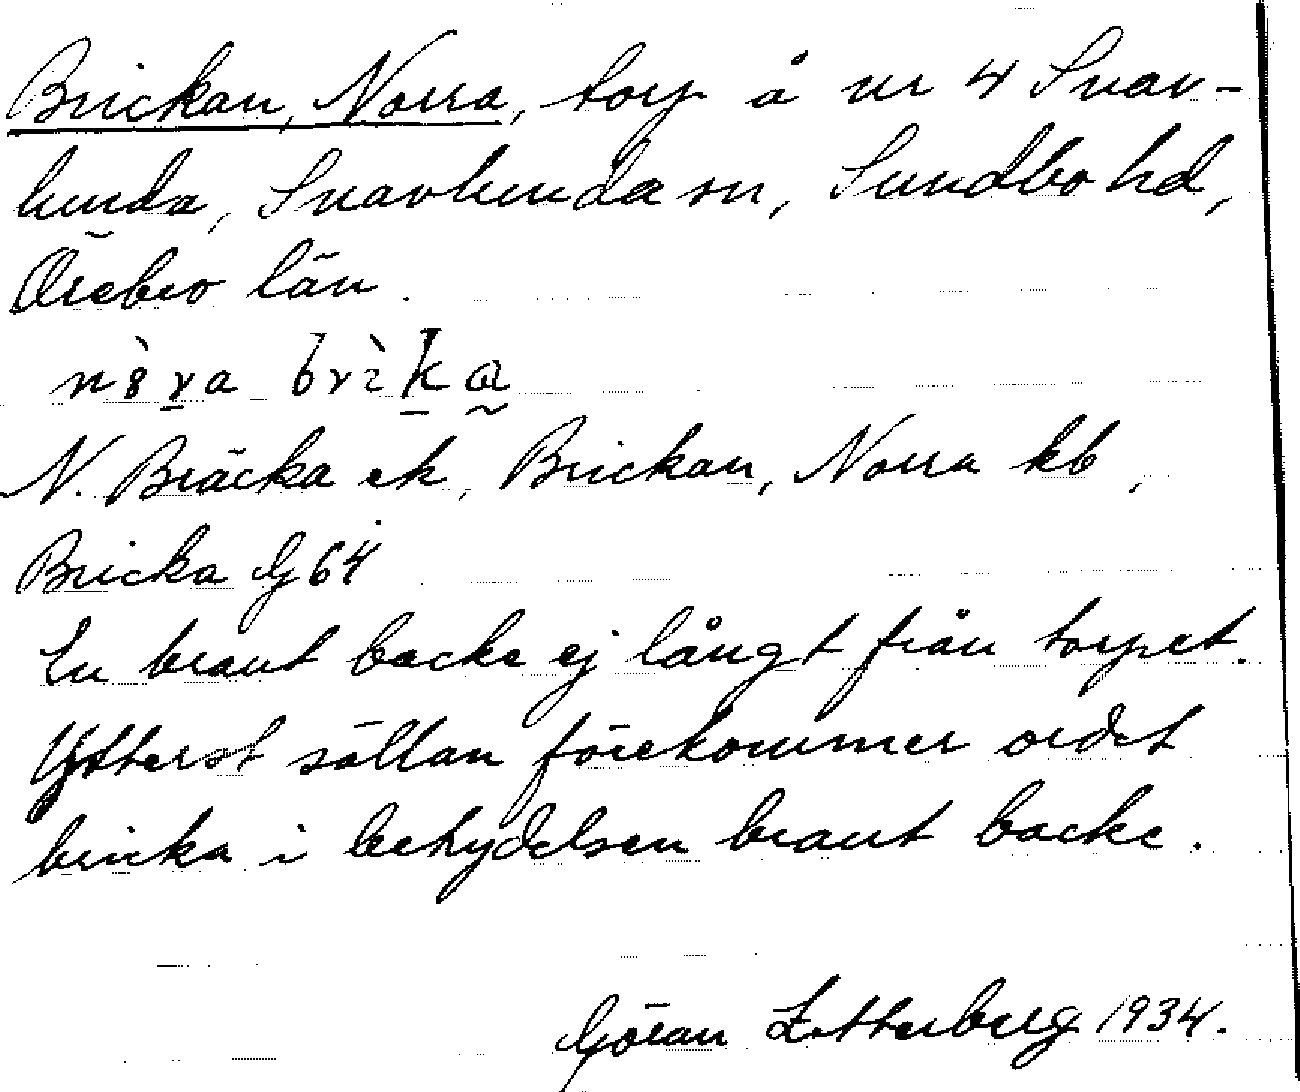 Brickan, Norra, torp å nr 4 Snav-
lunda, Snavlunda sn, Sundbo hd,
Örebro län.
N. Bräcka ek, Brickan, Norra kb,
Bricka G 64
En brant backe ej långt från torpet.
Ytterst sällan förekommer ordet
bricka i betydelsen brant backe.
Göran Zetterberg 1934.